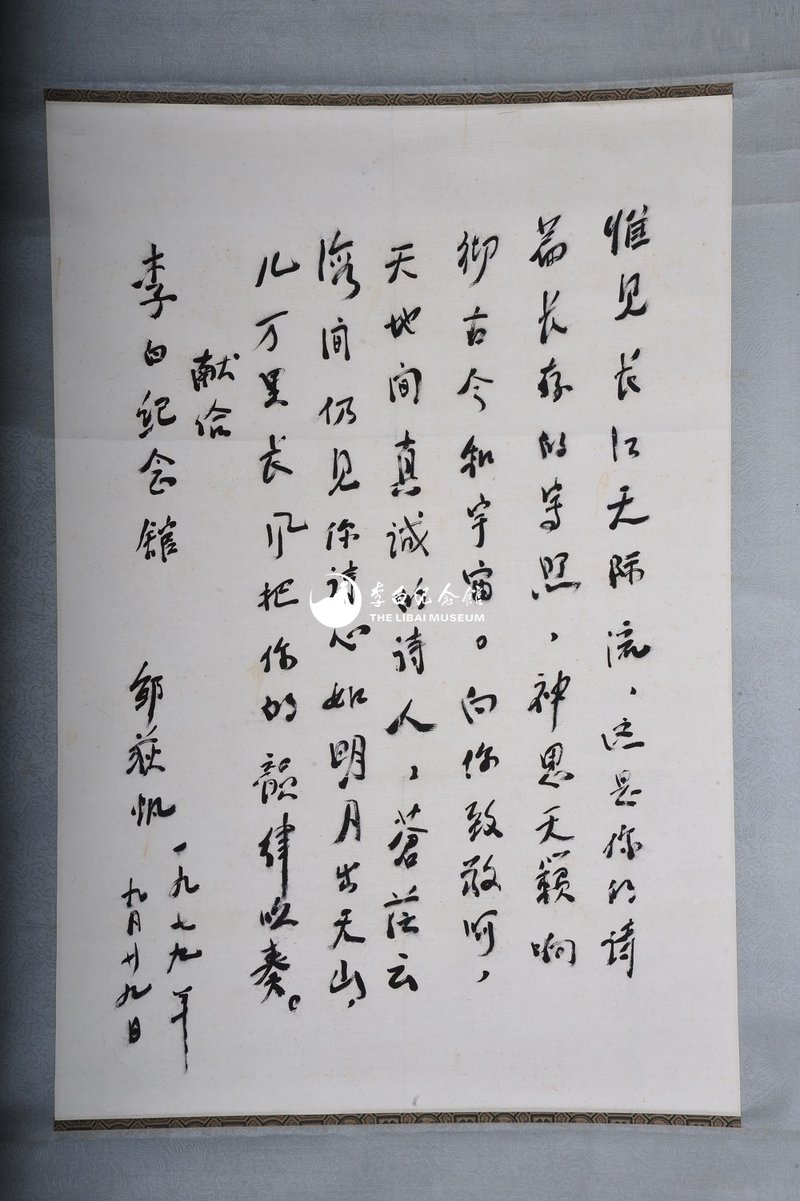 惟见长江天际流，这是你的诗
篇长存的写照，神思天籁响
彻古今和宇宙。向你致敬呵，
天地间真诚的诗人，苍茫云
海间仍见你诗心如明月出天山，
几万里长风把你的韻律吹奏。
献给
李白纪念舘
邹荻帆
一九七九年
九月廿九日
李白纪念馆
THE LIBAI MUSEUM